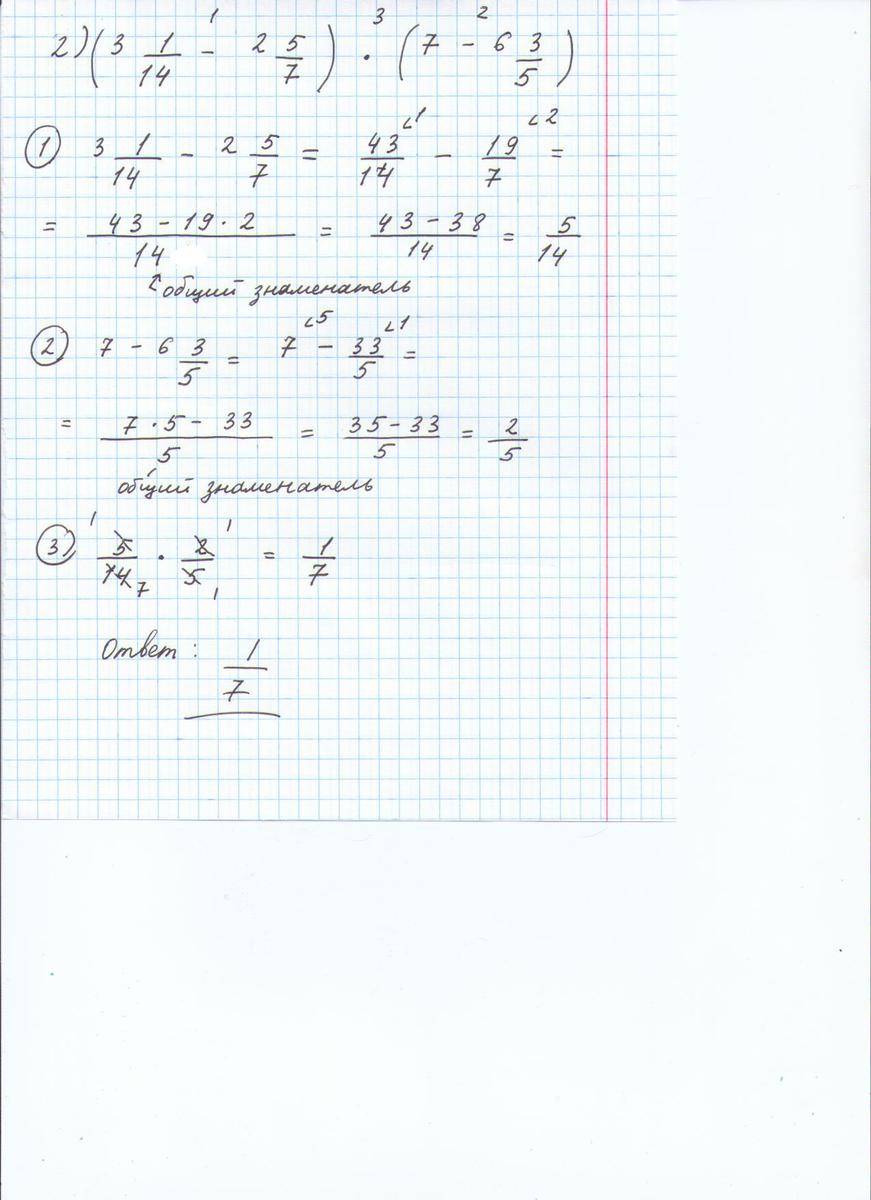 2) (3 1/14 - 2 5/7) · (7 - 6 3/5)
1 3 2
① 3 1/14 - 2 5/7 = 43/14 - 19/7 =
1 2
= (43 - 19 · 2)/14 = (43 - 38)/14 = 5/14
общий знаменатель
② 7 - 6 3/5 = 7 - 33/5 =
5 1
= (7 · 5 - 33)/5 = (35 - 33)/5 = 2/5
общий знаменатель
③ 5/14 · 2/5 = 1/7
1 1
7 1
Ответ: 1/7